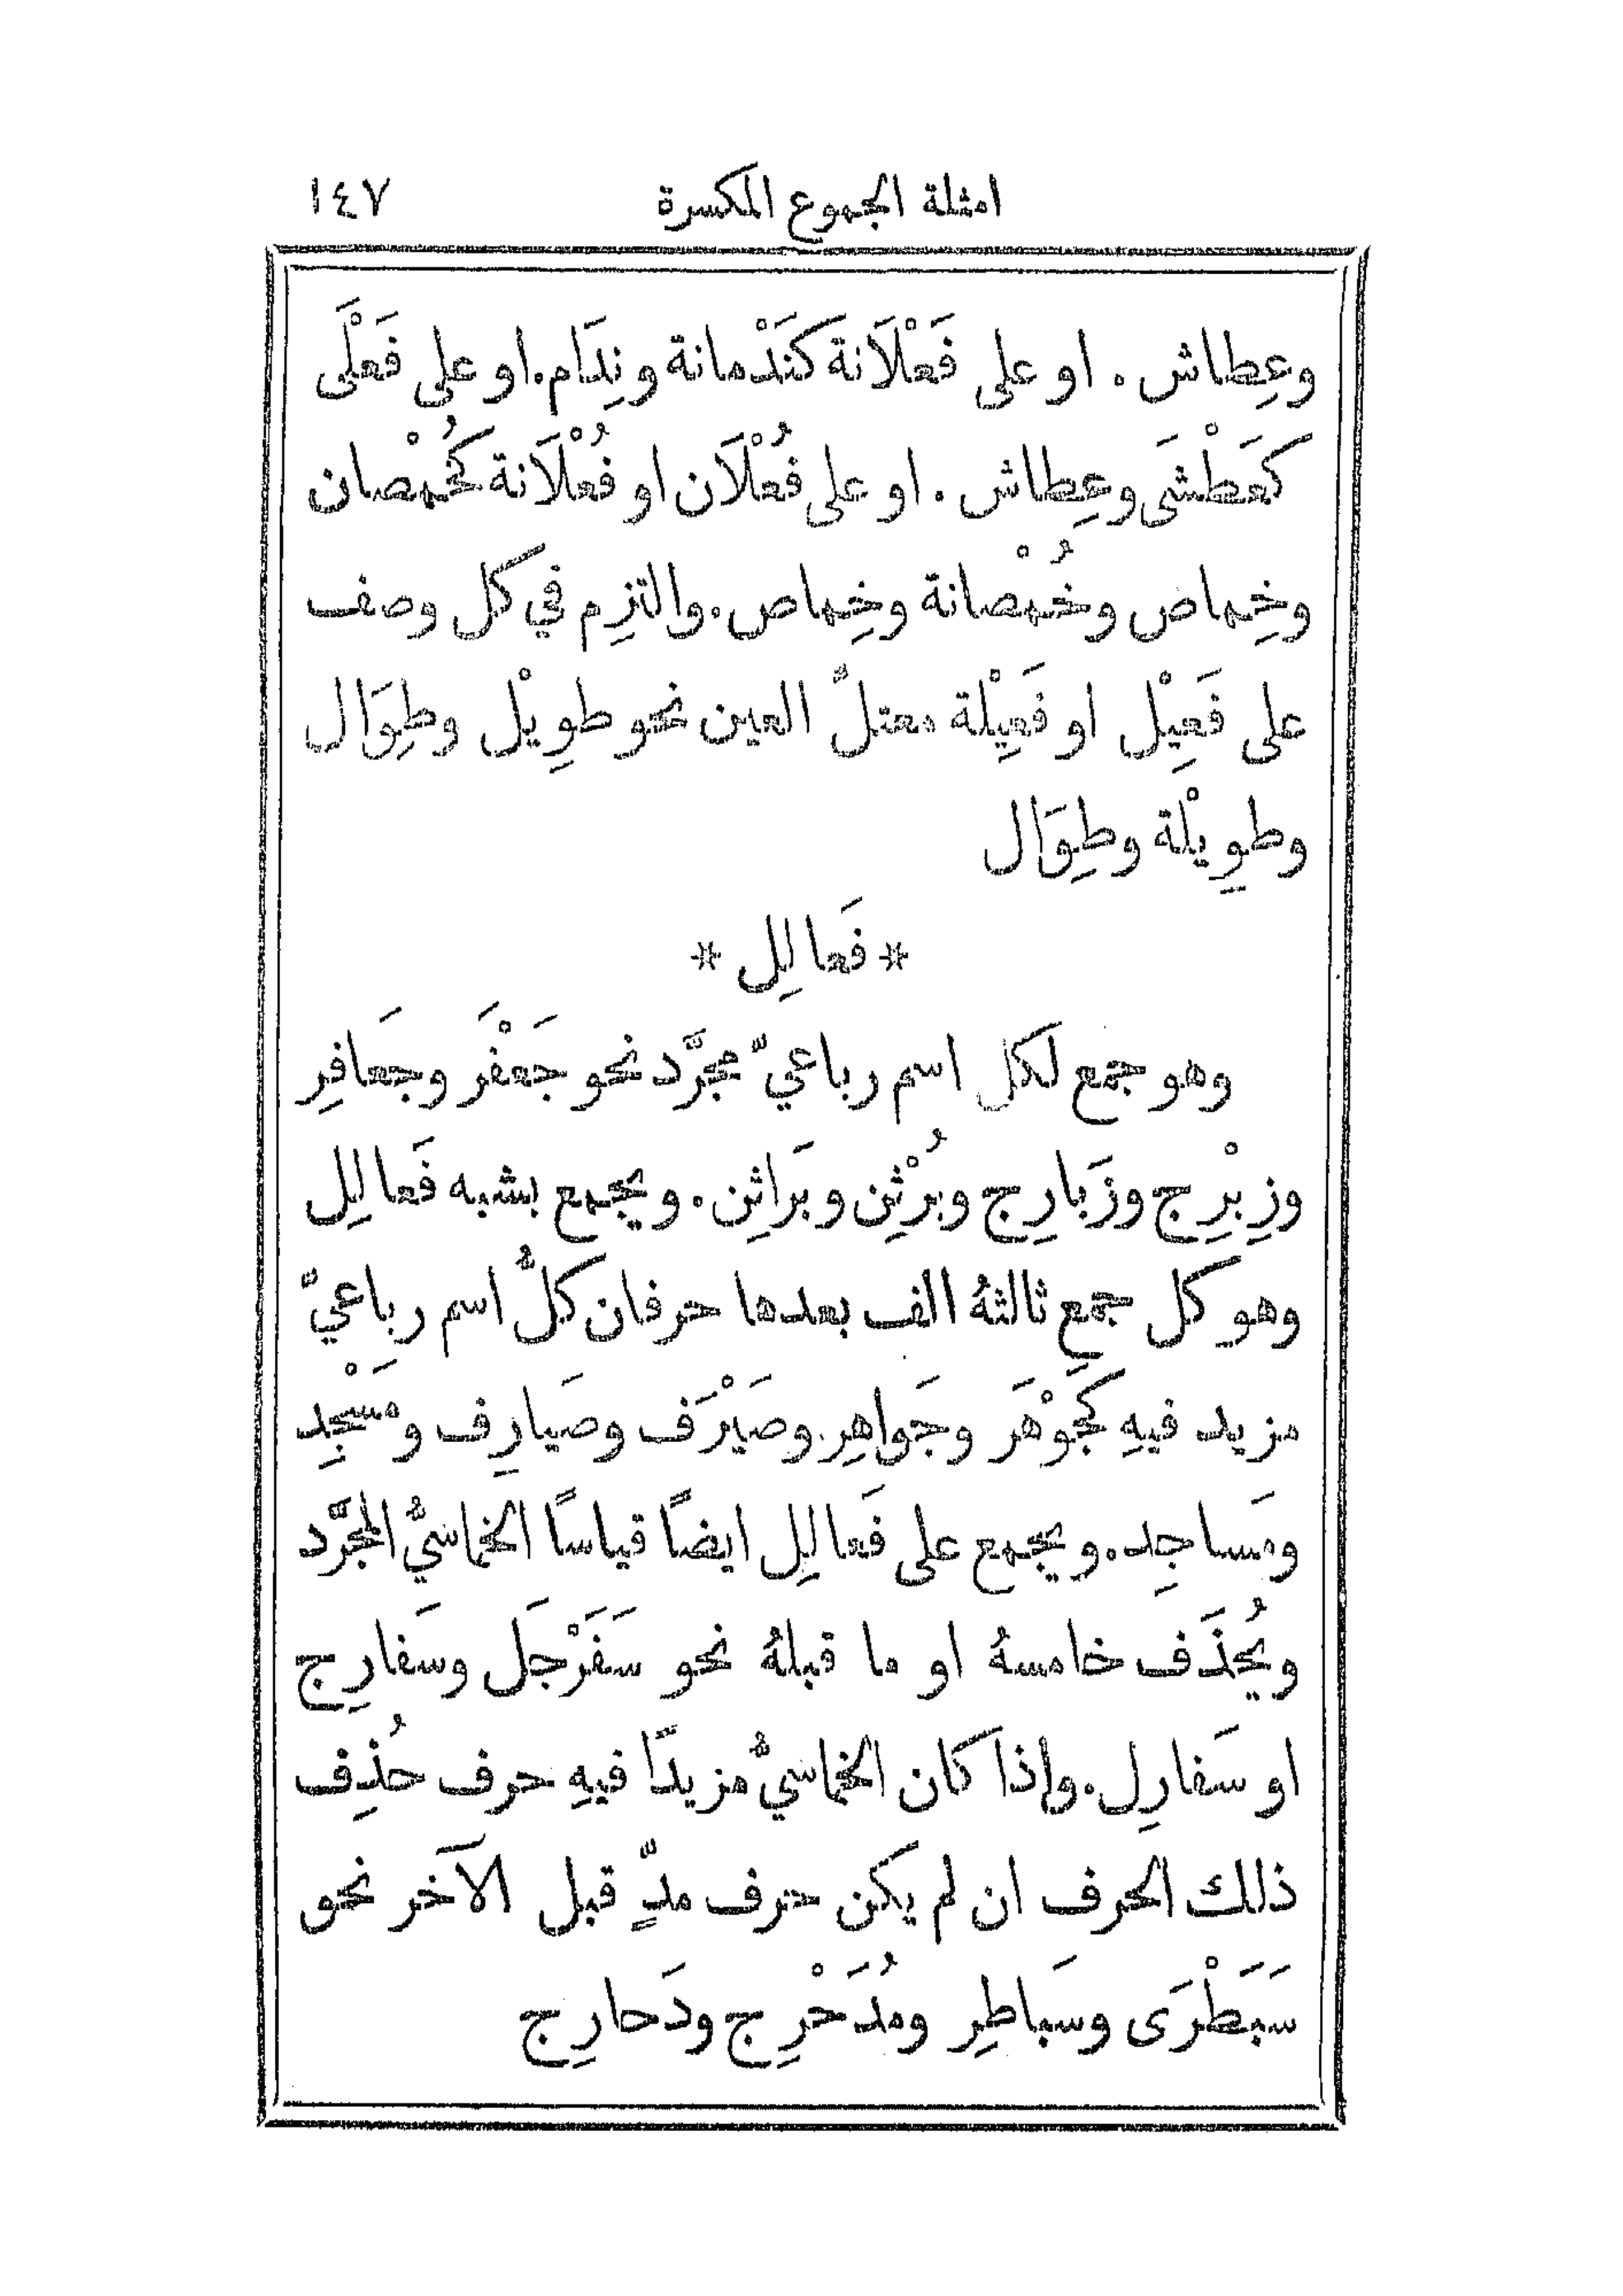 امثلة الجموع المكسرة ١٤٧
وعِطاش. او على فَعْلَانة كَنَدْمانة ونِدَام. او على فَعْلَى
كعَطْشَى وعِطاش. او على فُعْلَان او فُعْلَانة كخُمْصان
وخِماص وخُمْصانة وخِماص. والتزِم في كل وصف
على فَعِيْل او فَعِيْلة معتلّ العين نحو طوِيْل وطِوَال
وطوِيْلة وطِوَال
* فَعالِل *
وهو جمع لكل اسم رباعيّ مجرَّد نحو جَعْفَر وجَعافِر
وزِبْرِج وزَبارِج وبُرْثِن وبَراثِن. ويجمع بشبه فَعالِل
وهو كل جمعٍ ثالثهُ الف بعدها حرفان كلُّ اسم رباعيّ
مزيد فيهِ كَجَوْهَر وجَواهِر. وصَيْرَف وصَيارِف ومَسْجِد
ومَساجِد. ويجمع على فَعالِل ايضًا قياسًا الخماسيُّ المجرَّد
ويُحذَف خامسهُ او ما قبلهُ نحو سَفَرْجَل وسَفارِج
او سَفارِل. واذا كان الخماسيُّ مزيدًا فيهِ حرف حُذِف
ذلك الحرف ان لم يكن حرف مدٍّ قبل الآخر نحو
سَبَطْرَى وسَباطِر ومُدَحْرِج ودَحارِج